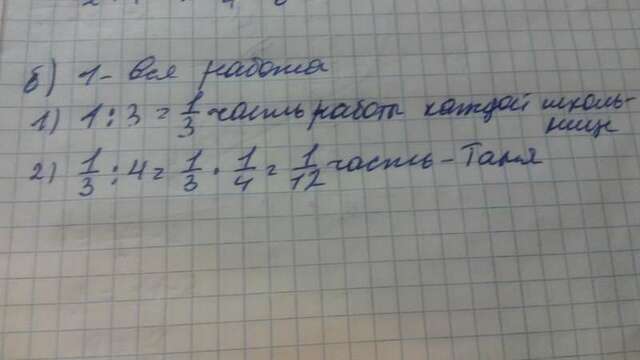 б) 1 - вся работа
1) 1 : 3 = 1/3 часть работы каждой школь-
нице
2) 1/3 : 4 = 1/3 · 1/4 = 1/12 часть - Таня